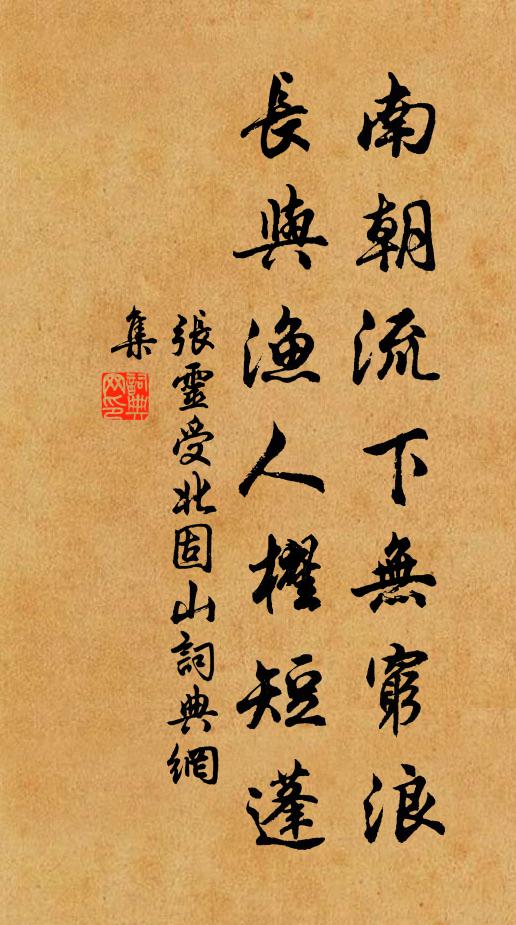 南朝流下無窮浪
長與漁人櫂短蓬
張靈受北固山詞典網
集
詞典網印